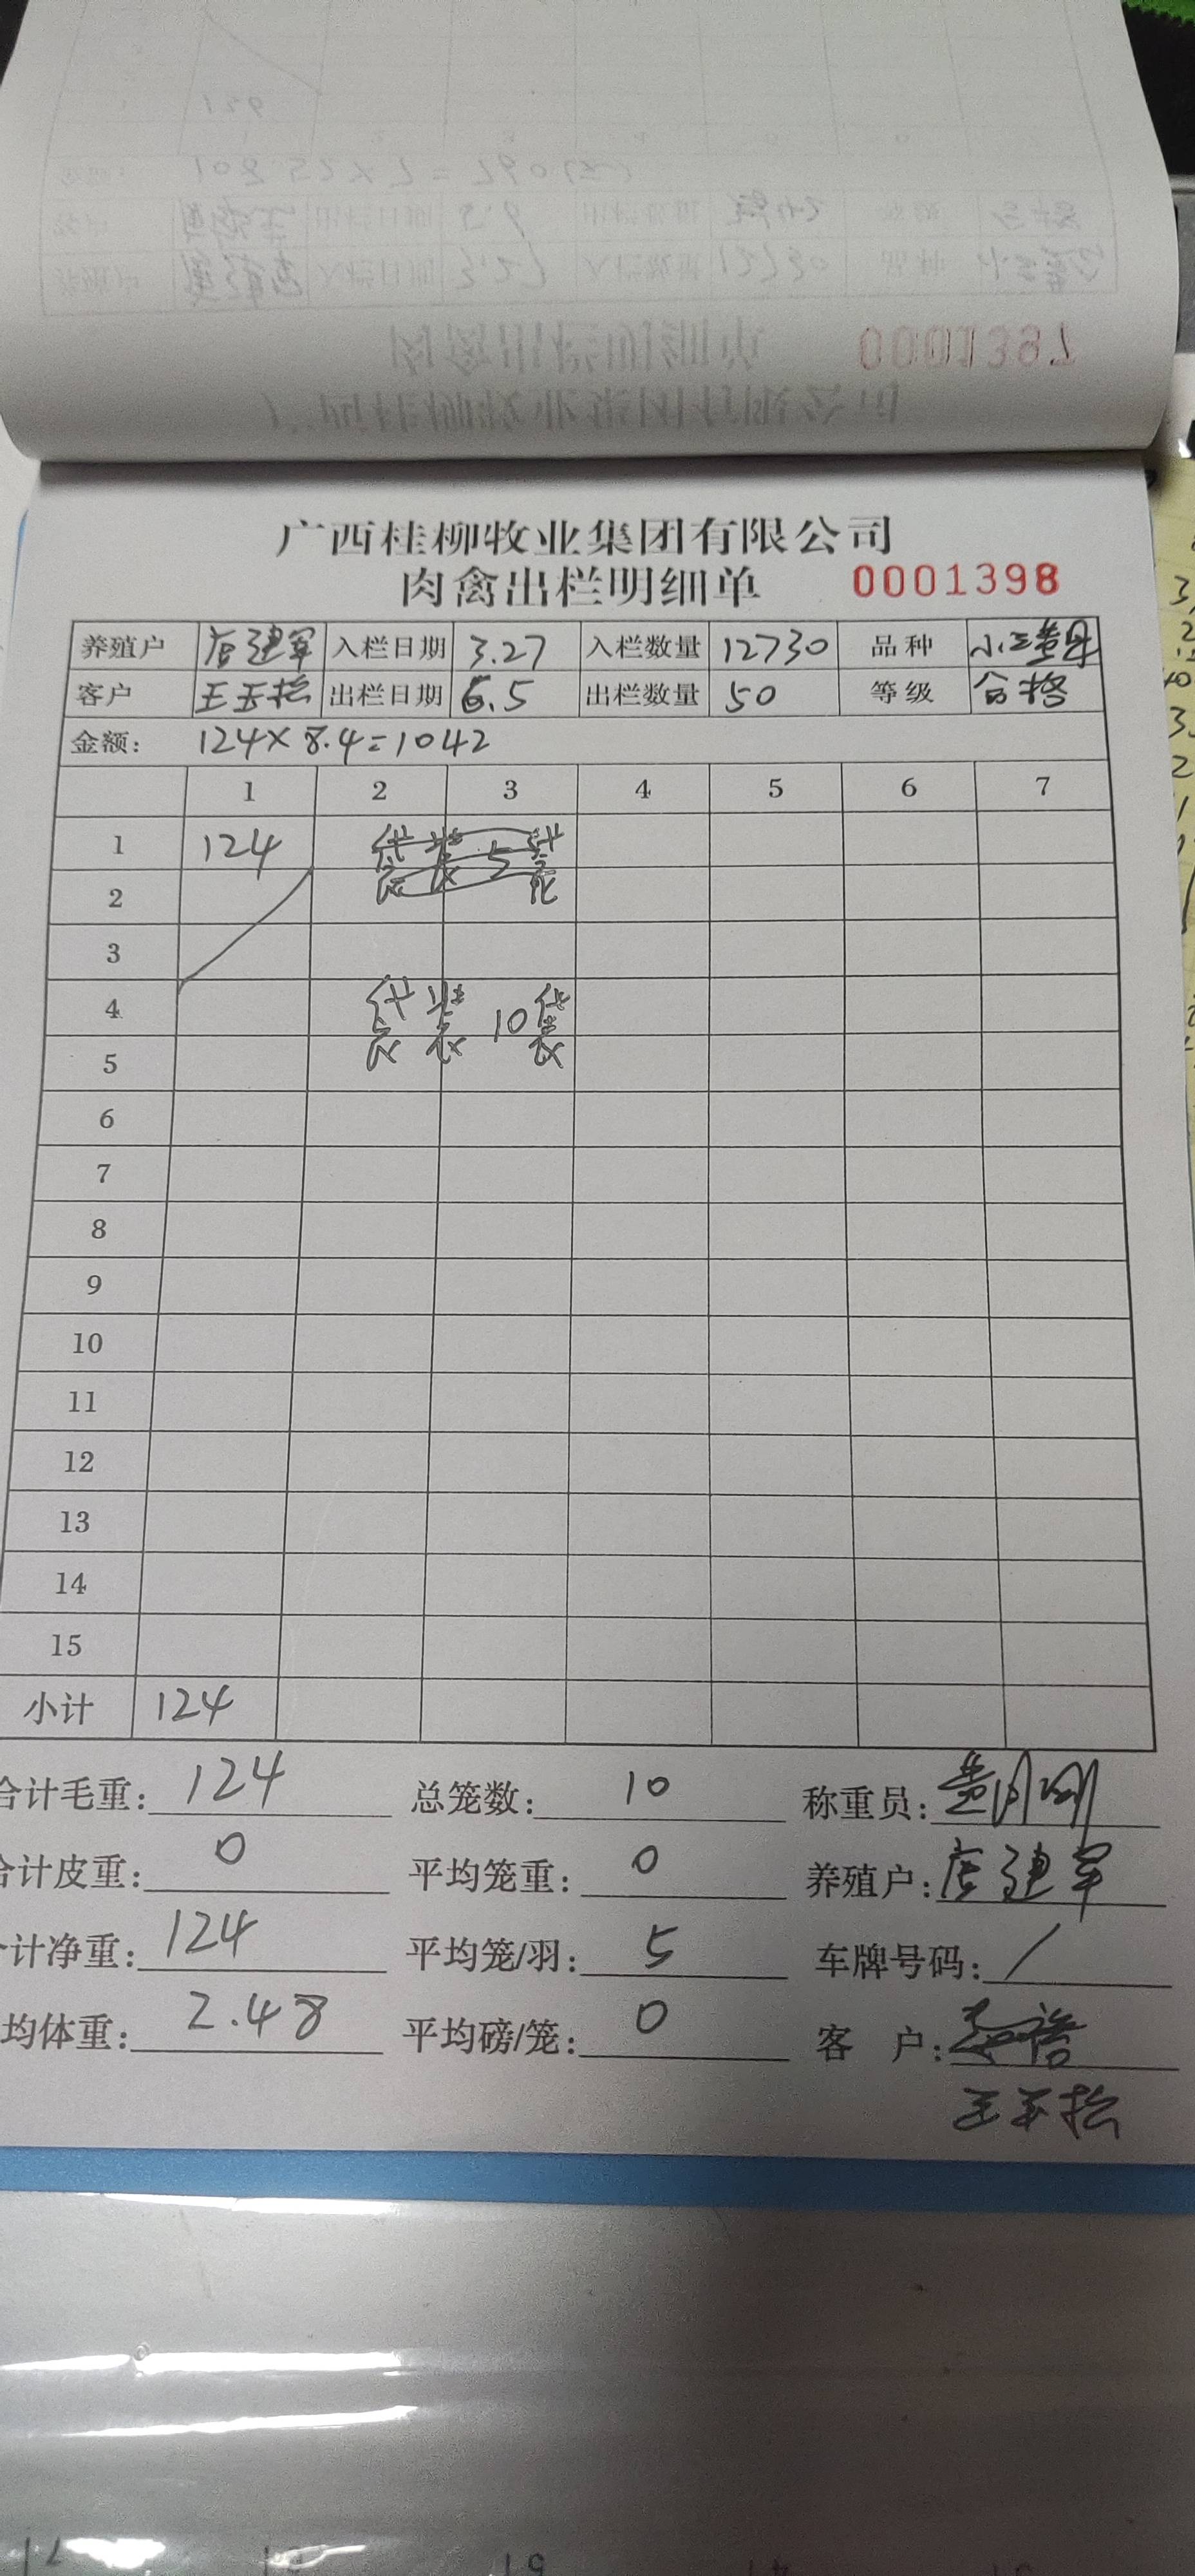 广西桂柳牧业集团有限公司
肉禽出栏明细单 0001398
养殖户 唐建军 入栏日期 3.27 入栏数量 12730 品种
客户 王玉松 出栏日期 6.5 出栏数量 50 等级 合格
金额: 124×8.4=1042
1 2 3 4 5 6 7
1 124 袋装5袋
2
3
4 袋装10袋
5
6
7
8
9
10
11
12
13
14
15
小计 124
合计毛重: 124 总笼数: 10 称重员:
合计皮重: 0 平均笼重: 0 养殖户: 唐建军
计净重: 124 平均笼/羽: 5 车牌号码: /
均体重: 2.48 平均磅/笼: 0 客户:
王玉松